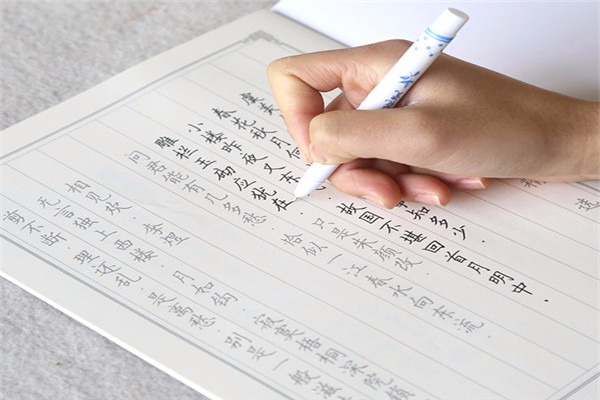 选
精
虞美
春花秋月何 知多少.
小楼昨夜又 故国不堪回首月明中.
雕栏玉砌应犹在. 只是朱颜改.
问君能有几多愁. 恰似一江春水向东流.
相见欢 李煜
无言独上西楼. 月如钩. 寂寞梧桐深院锁
剪不断. 理还乱. 是离愁. 别是一般滋